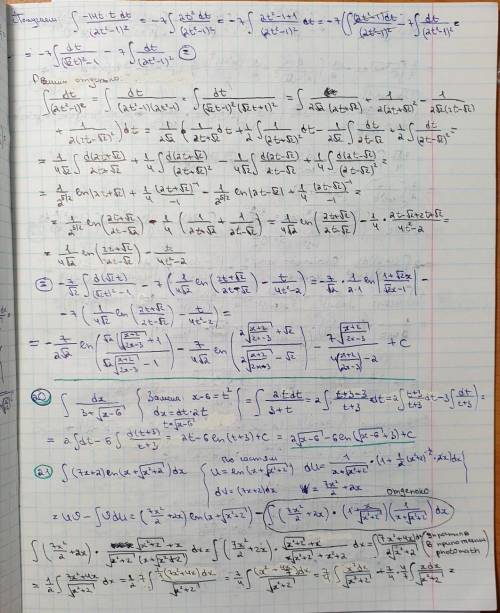 Получаем ∫ -14t·t dt/(2t²-1)² = -7∫ 2t² dt/(2t²-1)² = -7∫ (2t²-1+1)/(2t²-1)² dt = -7∫ (2t²-1)dt/(2t²-1)² - 7∫ dt/(2t²-1)² =
= -7∫ dt/((√2t)²-1) - 7∫ dt/(2t²-1)² ⊜
Решим отдельно
∫ dt/(2t²-1)² = ∫ dt/((2t²-1)(2t²-1)) = ∫ dt/((√2t-1)²(√2t+1)²) = ∫( 1/(2√2(2t+√2)) + 1/(2(2t+√2)²) - 1/(2√2(2t-√2))
+ 1/(2(2t-√2)²) )dt = 1/(2√2) ∫ 1/(2t+√2) dt + 1/2 ∫ 1/(2t+√2)² dt - 1/(2√2) ∫ dt/(2t-√2) + 1/2 ∫ dt/(2t-√2)² =
= 1/(4√2) ∫ d(2t+√2)/(2t+√2) + 1/4 ∫ d(2t+√2)/(2t+√2)² - 1/(4√2) ∫ d(2t-√2)/(2t-√2) + 1/4 ∫ d(2t-√2)/(2t-√2)² =
= 1/2^(5/2) ln(2t+√2) + 1/4 (2t+√2)⁻¹/-1 - 1/2^(5/2) ln(2t-√2) + 1/4 (2t-√2)⁻¹/-1 =
= 1/2^(5/2) ln((2t+√2)/(2t-√2)) - 1/4 (1/(2t+√2) + 1/(2t-√2)) = 1/(4√2) ln((2t+√2)/(2t-√2)) - 1/4 · (2t-√2+2t+√2)/(4t²-2) =
= 1/(4√2) ln((2t+√2)/(2t-√2)) - t/(4t²-2)
⊜ -7/√2 ∫ d(√2t)/((√2t)²-1) - 7(1/(4√2) ln((2t+√2)/(2t-√2)) - t/(4t²-2)) = -7/√2 · 1/(2·1) ln|(1+√2x)/(√2x-1)| -
- 7(1/(4√2) ln((2t+√2)/(2t-√2)) - t/(4t²-2)) =
= -7/(2√2) ln((√2√((x+2)/(2x-3))+1)/(√2√((x+2)/(2x-3))-1)) - 7/(4√2) ln((2√((x+2)/(2x-3))+√2)/(2√((x+2)/(2x-3))-√2)) - 7√((x+2)/(2x-3))/(4(x+2)/(2x-3)-2) + C
20 ∫ dx/(3+√(x-6)) { Замена x-6=t² dx=dt·2t t=√(x-6) } = ∫ 2t dt/(3+t) = 2∫ (t+3-3)/(t+3) dt = 2∫ (t+3)/(t+3) dt - 3∫ dt/(t+3) =
= 2∫dt - 6∫ d(t+3)/(t+3) = 2t-6ln(t+3)+C = 2√(x-6) - 6ln(√(x-6)+3)+C
21 ∫(7x+2)ln(x+√(x²+2))dx { по частям u=ln(x+√(x²+2)) du = 1/(x+√(x²+2)) · (1+1/2(x²+2)^(-1/2)·2x)dx dv=(7x+2)dx v=7x²/2+2x
отдельно
= uv-∫vdu = (7x²/2+2x)ln(x+√(x²+2)) - ∫(7x²/2+2x)·(1+x/√(x²+2))(1/(x+√(x²+2)))dx
∫(7x²/2+2x)· (√(x²+2)+x)/(√(x²+2)(x+√(x²+2))) dx = ∫(7x²/2+2x)· (√(x²+2)+x)/(x√(x²+2)+x²+2) dx = ∫ (7x²+4x)dx/(2√(x²+2)) упростила в приложении photomath
= 1/2 ∫ (7x²+4x)/√(x²+2) dx = 1/2·7∫ (7x²+4x)dx/√(x²+2) = 7/2 ∫ (x²+4x/7)dx/√(x²+2) = 7/2 ∫ x²dx/√(x²+2) + 7/2 · 4/7 ∫ xdx/√(x²+2) =